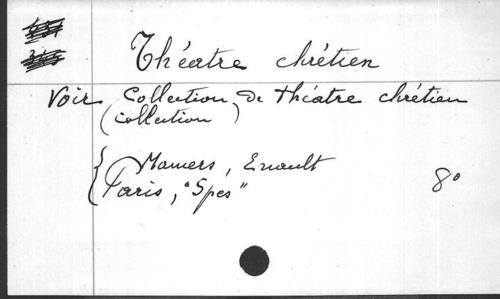 Théatre chrétien
Voir Collection de théatre chrétien
(collection)
{ Mamers, Enault
Paris, "Spes" 8°